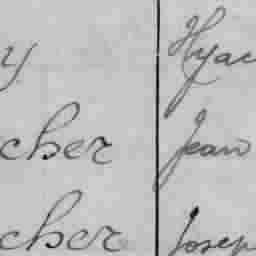 y Hyac
cher Jean
cher Josep